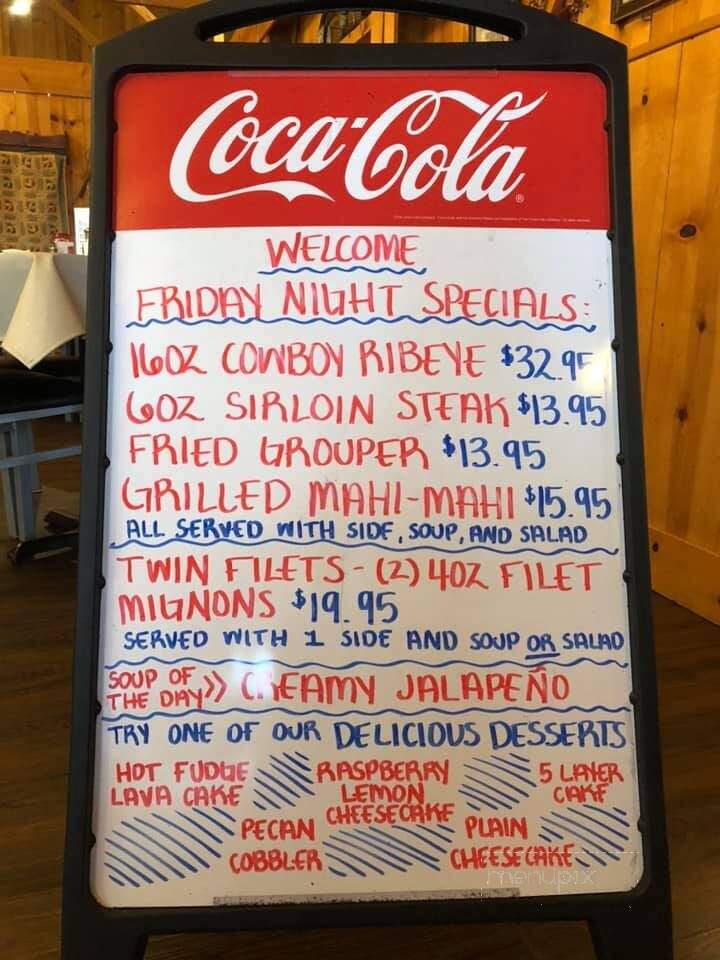 Coca-Cola
WELCOME
FRIDAY NIGHT SPECIALS:
16OZ COWBOY RIBEYE $32.95
6OZ SIRLOIN STEAK $13.95
FRIED GROUPER $13.95
GRILLED MAHI-MAHI $15.95
ALL SERVED WITH SIDE, SOUP, AND SALAD
TWIN FILETS - (2) 4OZ FILET
MIGNONS $19.95
SERVED WITH 1 SIDE AND SOUP OR SALAD
SOUP OF
THE DAY >> CREAMY JALAPEÑO
TRY ONE OF OUR DELICIOUS DESSERTS
HOT FUDGE
LAVA CAKE
RASPBERRY
LEMON
CHEESECAKE
5 LAYER
CAKE
PECAN
COBBLER
PLAIN
CHEESECAKE
menupix